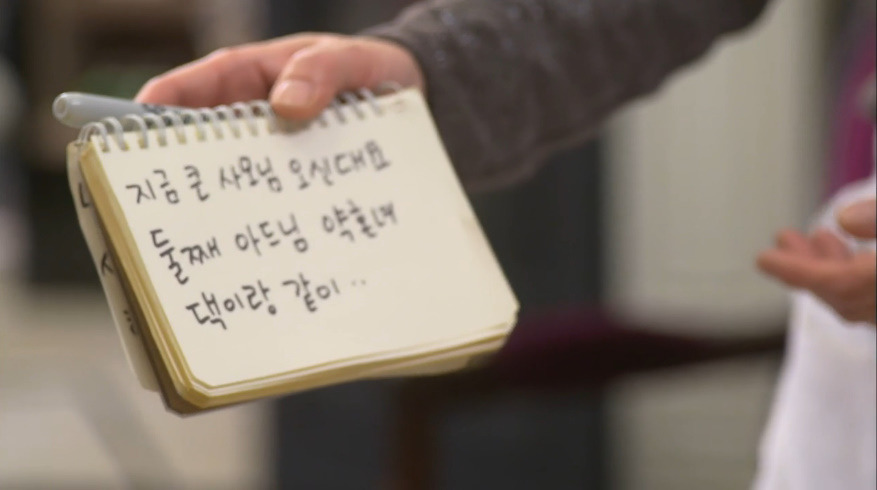 지금 큰 사모님 오신대요
둘째 아드님 약혼녀
댁이랑 같이..